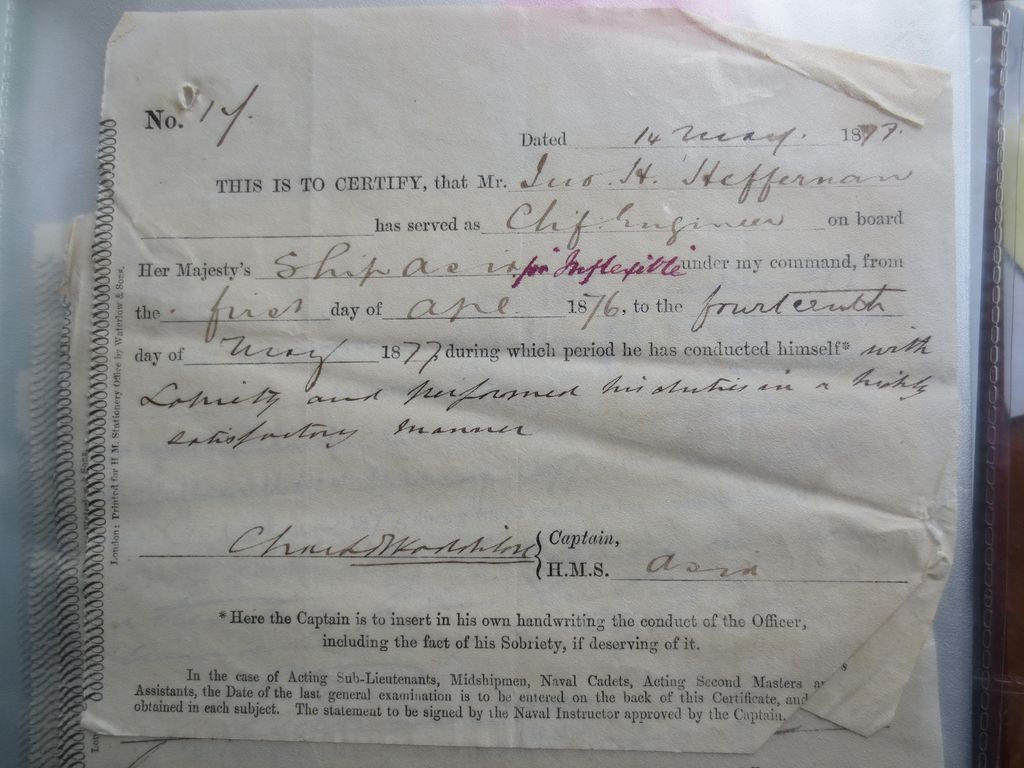 No. 17.
Dated 14 May. 1877.
THIS IS TO CERTIFY, that Mr. Jno. H. Heffernan
has served as Chf. Engineer on board
Her Majesty's Ship Asia for Inflexible under my command, from
the first day of Apl. 1876, to the fourteenth
day of May 1877, during which period he has conducted himself* with
Sobriety and performed his duties in a highly
satisfactory manner
Captain,
H.M.S. Asia
*Here the Captain is to insert in his own handwriting the conduct of the Officer,
including the fact of his Sobriety, if deserving of it.
In the case of Acting Sub-Lieutenants, Midshipmen, Naval Cadets, Acting Second Masters
Assistants, the Date of the last general examination is to be entered on the back of this Certificate, and
obtained in each subject. The statement to be signed by the Naval Instructor approved by the Captain.
London: Printed for H.M. Stationery Office by Waterlow & Sons.